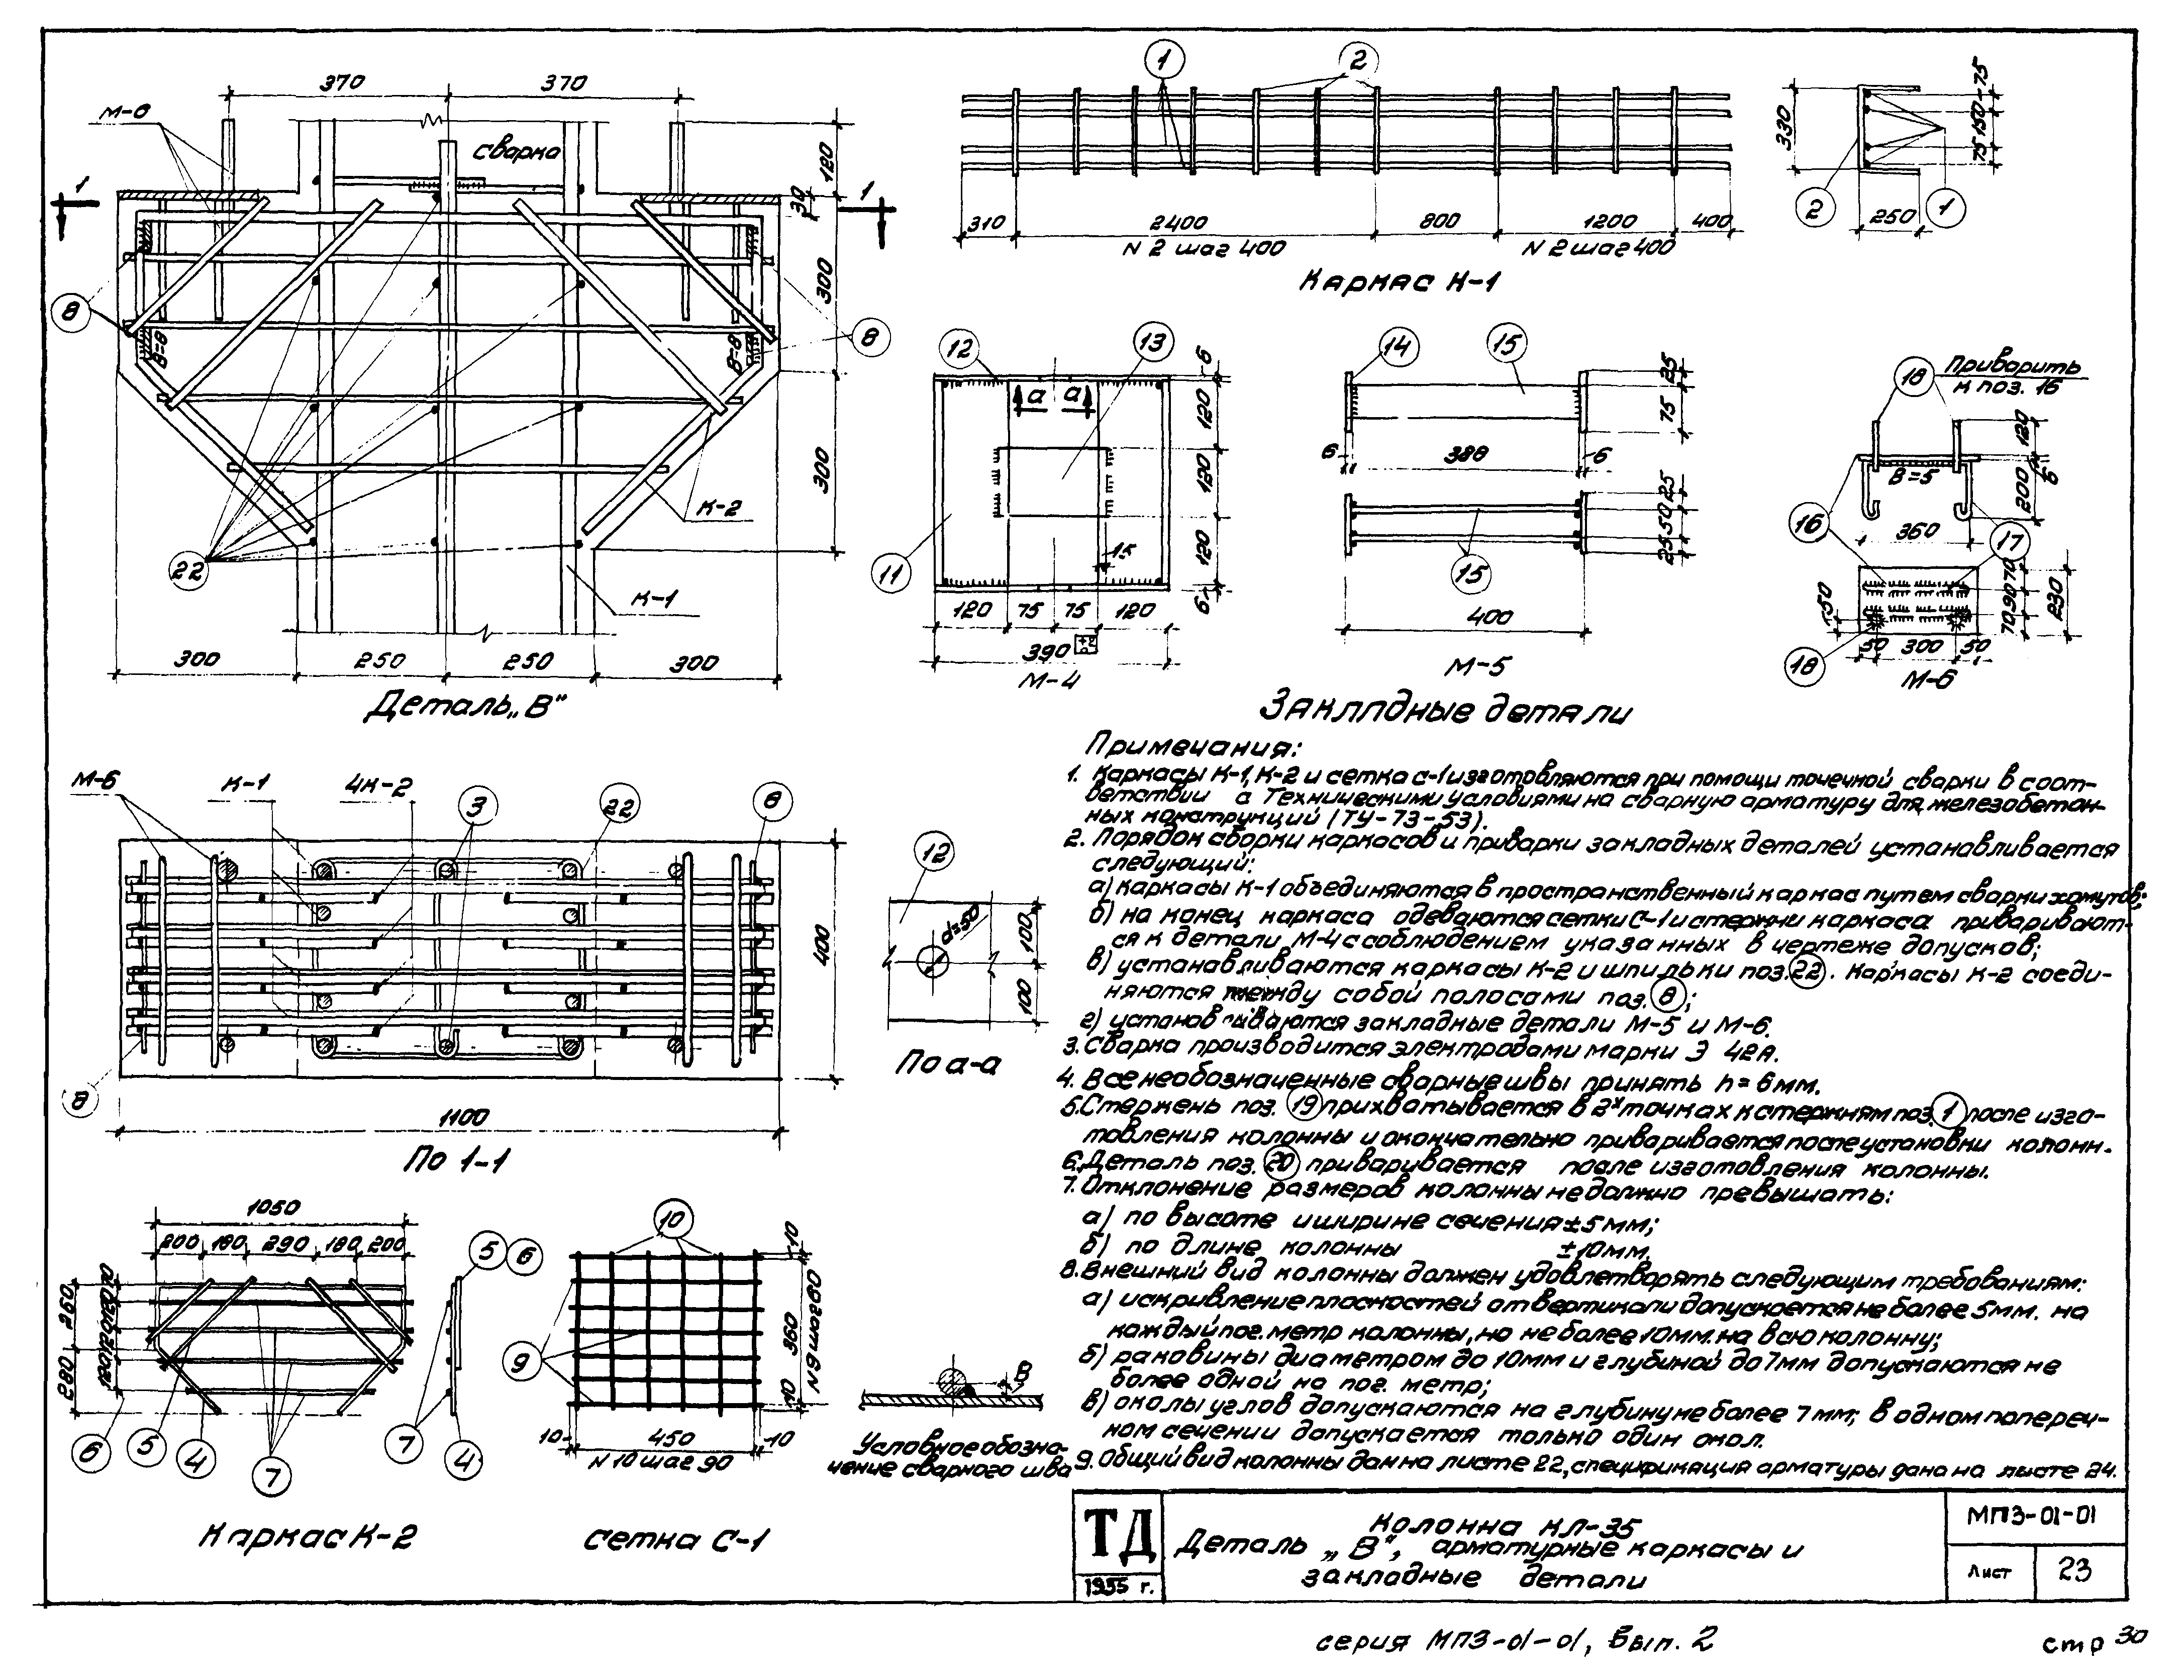 370 370
М-6
сварка
1 1
120
30
300
300
8 8
В=8 В=8
22
К-2
К-1
300 250 250 300
Деталь „В"
1 2
330
75 150 75
2 1
250
310 2400 800 1200 400
N 2 шаг 400 N 2 шаг 400
Каркас К-1
12 13
6
а а
120
120
120
6
11
15
120 75 75 120
390
М-4
14 15
25
75
6 388 6
25 50 25
15
400
М-5
18 Приварить
к поз. 16
120
6
200
В=5
16
360
17
50
70 90 70
230
50 300 50
18
М-6
Закладные детали
М-6 К-1 4К-2 3 22 8
400
8
1100
По 1-1
12
d=50
100
100
По а-а
1050
200 180 290 180 200
260
280
6 5 4 7
5 6
7 4
Каркас К-2
10
10
360
N 9 шаг 60
10
9
10 450 10
N 10 шаг 90
Сетка С-1
В
Условное обозна-
чение сварного шва
Примечания:
1. Каркасы К-1, К-2 и сетка С-1 изготовляются при помощи точечной сварки в соот-
ветствии с Техническими условиями на сварную арматуру для железобетон-
ных конструкций (ТУ-73-53).
2. Порядок сборки каркасов и приварки закладных деталей устанавливается
следующий:
а) каркасы К-1 объединяются в пространственный каркас путем сварки хомутов;
б) на конец каркаса одеваются сетки С-1 и стержни каркаса приваривают-
ся к детали М-4 с соблюдением указанных в чертеже допусков;
в) устанавливаются каркасы К-2 и шпильки поз. 22. Каркасы К-2 соеди-
няются между собой полосами поз. 8;
г) устанавливаются закладные детали М-5 и М-6.
3. Сварка производится электродами марки Э 42А.
4. Все необозначенные сварные швы принять h = 6 мм.
5. Стержень поз. 19 прихватывается в 2х точках к стержням поз. 1 после изго-
товления колонны и окончательно приваривается после установки колонн.
6. Деталь поз. 20 приваривается после изготовления колонны.
7. Отклонение размеров колонны не должно превышать:
а) по высоте и ширине сечения ±5 мм;
б) по длине колонны ±10 мм.
8. Внешний вид колонны должен удовлетворять следующим требованиям:
а) искривление плоскостей от вертикали допускается не более 5 мм. на
каждый пог. метр колонны, но не более 10 мм. на всю колонну;
б) раковины диаметром до 10 мм и глубиной до 7 мм допускаются не
более одной на пог. метр;
в) околы углов допускаются на глубину не более 7 мм; в одном попереч-
ном сечении допускается только один окол.
9. Общий вид колонны дан на листе 22, спецификация арматуры дана на листе 24.
ТД
1955 г.
Колонна КЛ-35
Деталь „В", арматурные каркасы и
закладные детали
МПЗ-01-01
Лист 23
серия МПЗ-01-01, вып. 2
стр 30